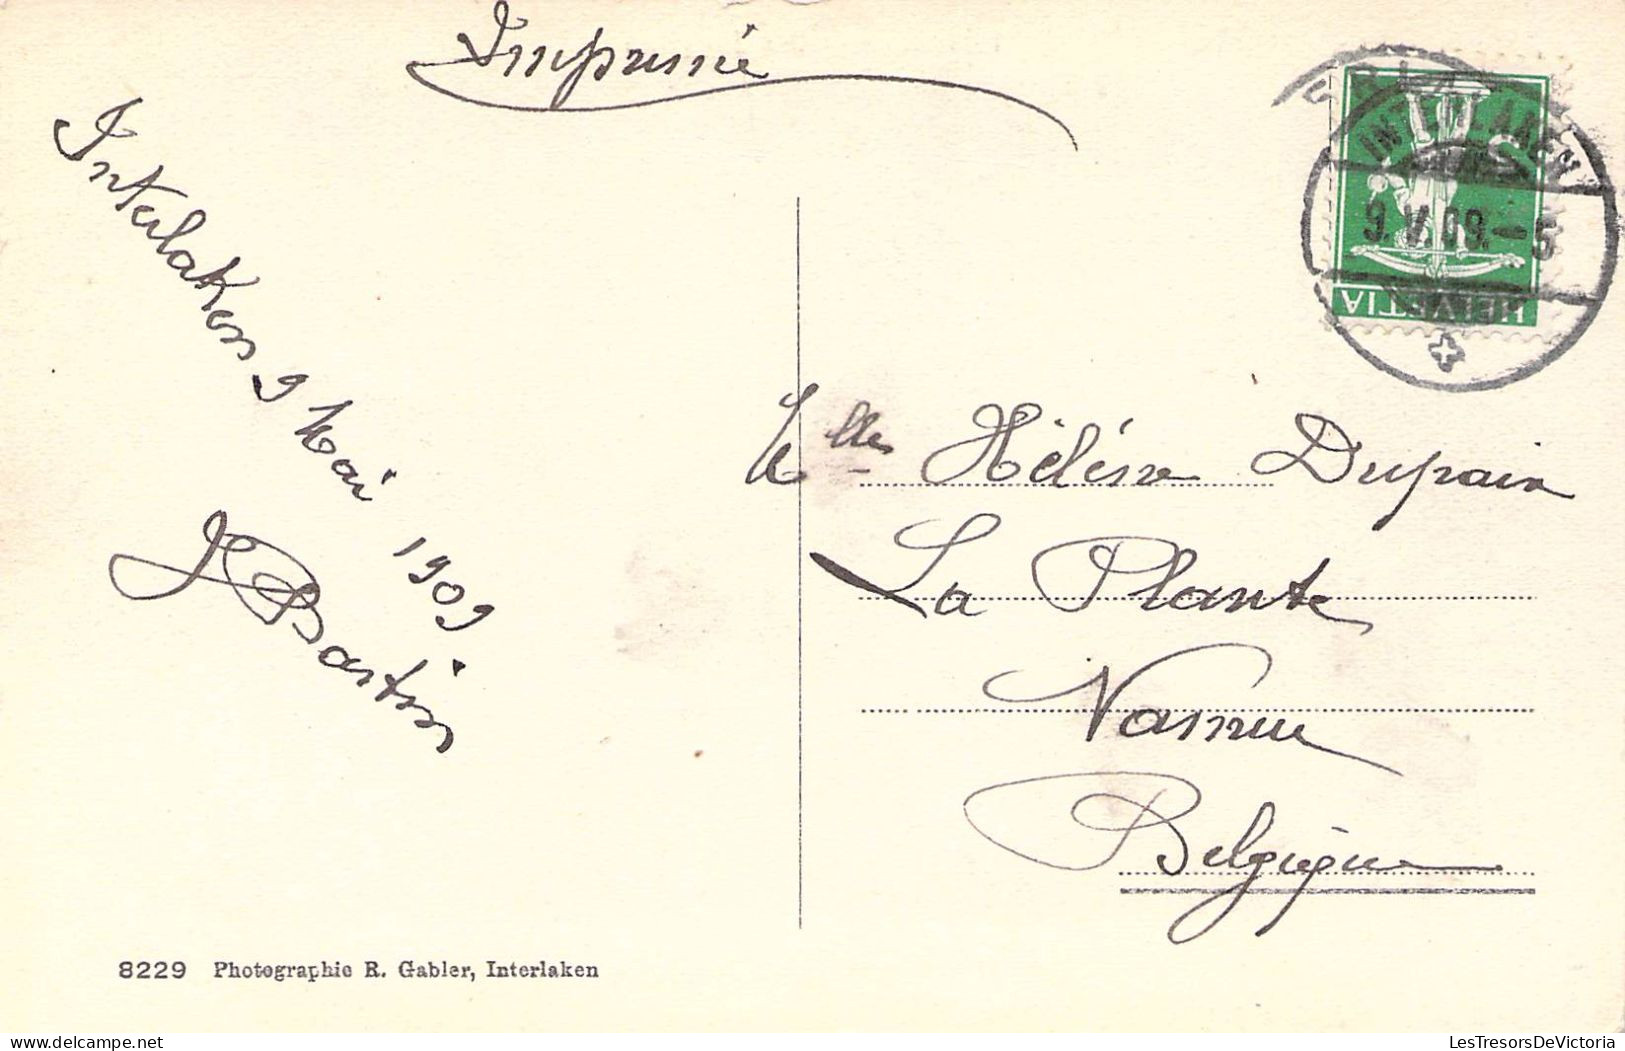 Imprimé
Interlaken 9 Mai 1909
J Bastin
INTERLAKEN
9. V. 09. - 5
HELVETIA
Melle Hélène Dupain
La Plante
Namur
Belgique
8229 Photographie R. Gabler, Interlaken
delcampe.net
LesTresorsDeVictoria